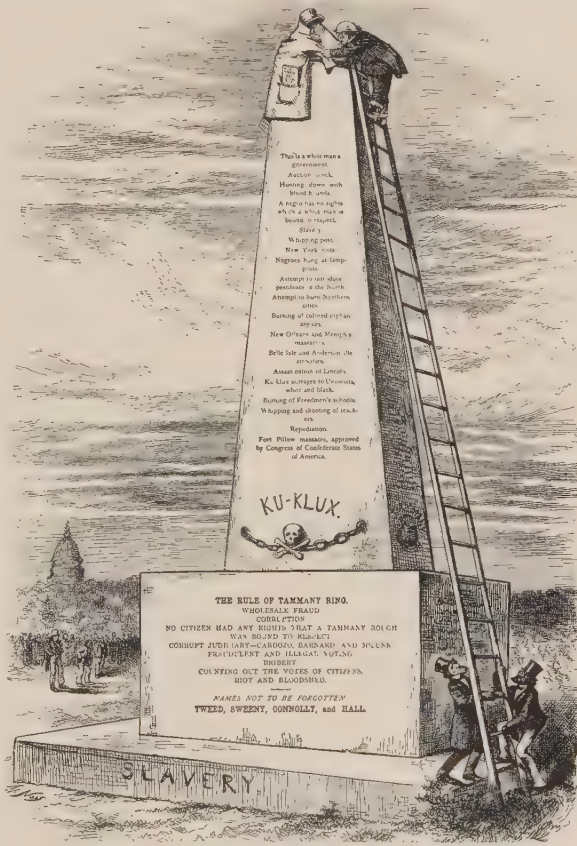 This is a white man's
government.
Auction block.
Hunting down with
blood hounds.
A negro has no rights
which a white man is
bound to respect.
Slavery.
Whipping post.
New York riots.
Negroes hung at lamp-
posts.
Attempt to introduce
pestilence in the North.
Attempt to burn Northern
cities.
Burning of colored orphan
asylums.
New Orleans and Memphis
massacres.
Belle Isle and Andersonville
atrocities.
Assassination of Lincoln.
Ku klux outrages to Unionists,
white and black.
Burning of Freedmen's schools.
Whipping and shooting of teach-
ers.
Repudiation.
Fort Pillow massacre, approved
by Congress of Confederate States
of America.
KU-KLUX.
THE RULE OF TAMMANY RING.
WHOLESALE FRAUD
CORRUPTION
NO CITIZEN HAD ANY RIGHTS THAT A TAMMANY ROUGH
WAS BOUND TO RESPECT
CORRUPT JUDICIARY—CARDOZO, BARNARD AND
FRAUDULENT AND ILLEGAL VOTING
BRIBERY
COUNTING OUT THE VOTES OF CITIZENS,
RIOT AND BLOODSHED.
NAMES NOT TO BE FORGOTTEN
TWEED, SWEENY, CONNOLLY, and HALL.
SLAVERY